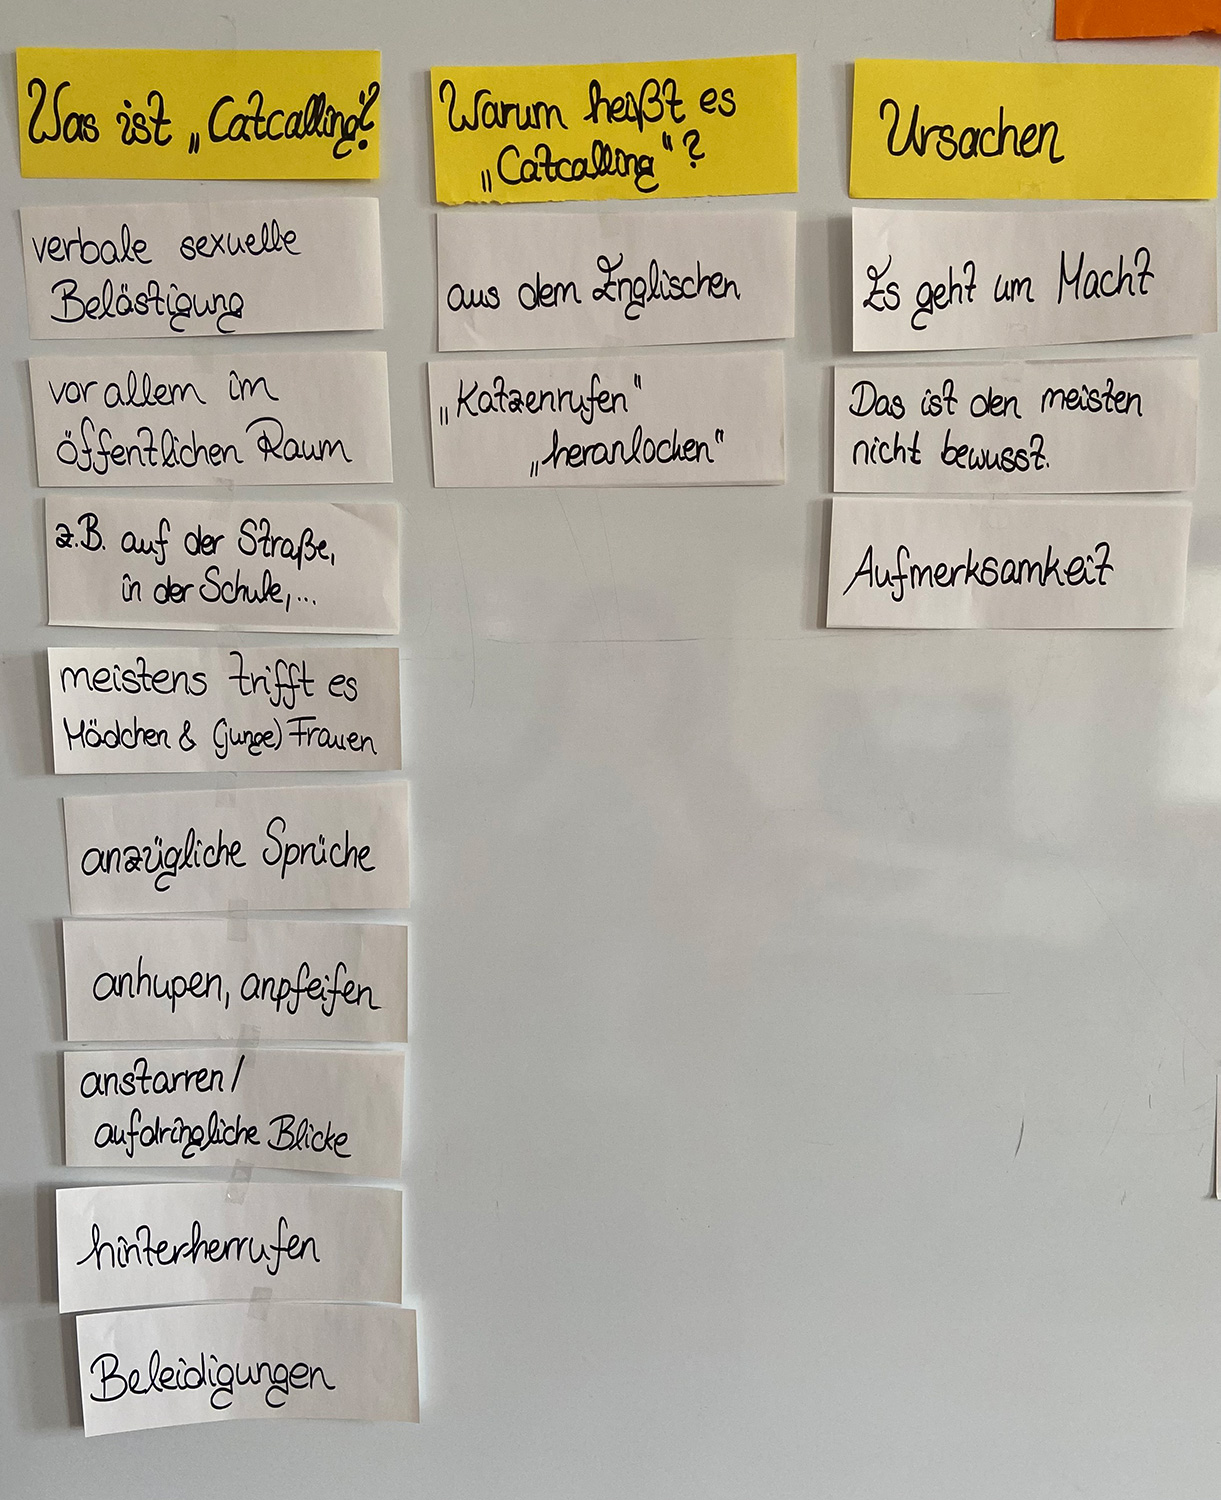 Was ist „Catcalling"?
verbale sexuelle
Belästigung
vor allem im
öffentlichen Raum
z.B. auf der Straße,
in der Schule,...
meistens trifft es
Mädchen & (junge) Frauen
anzügliche Sprüche
anhupen, anpfeifen
anstarren/
aufdringliche Blicke
hinterherrufen
Beleidigungen
Warum heißt es
„Catcalling"?
aus dem Englischen
„Katzenrufen"
„heranlocken"
Ursachen
Es geht um Macht
Das ist den meisten
nicht bewusst.
Aufmerksamkeit